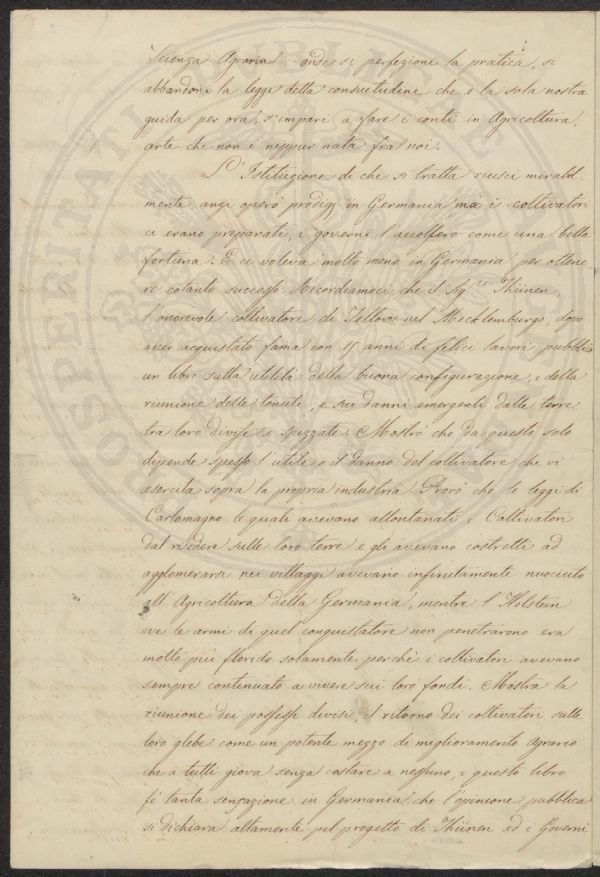 Scienza Agraria onde si perfezioni la pratica, si
abbandoni la legge della consuetudine che è la sola nostra
guida per ora, s'impari a fare i conti in Agricoltura,
arte che non è neppur nata fra noi.
L'Istituzione di che si tratta riuscì mirabil-
mente, anzi operò prodigj in Germania ma i coltivatori
ci erano preparati, i governi l'accolsero come una bella
fortuna. E ci voleva molto meno in Germania per ottene
re cotanto successo. Ricordiamoci che il Sig.re Thünen
l'onorevole coltivatore di Tellow nel Mecklemburgo, dopo
aver acquistato fama con 15 anni di felici lavori, pubblicò
un libro sulla utilità della buona configurazione, e della
riunione delle tenute, e sui danni emergenti dalle terre
tra loro divise e spezzate. Mostrò che da questo solo
dipende spesso l'utile o il danno del coltivatore che vi
esercita sopra la propria industria. Provò che le leggi di
Carlomagno le quali avevano allontanati i Coltivatori
dal risedere sulle loro terre e gli avevano costretti ad
agglomerarsi nei villaggi avevano infinitamente nuociuto
all'Agricoltura della Germania, mentre l'Holstein
ove le armi di quel conquistatore non penetrarono era
molto più florido solamente perchè i coltivatori avevano
sempre continuato a vivere sui loro fondi. Mostra la
riunione dei possessi divisi, il ritorno dei coltivatori sulle
loro glebe come un potente mezzo di miglioramento agrario
che a tutti giova senza costare a nessuno, e questo libro
fè tanta sensazione in Germania che l'opinione pubblica
si dichiara altamente pel progetto di Thünen ed i Governi